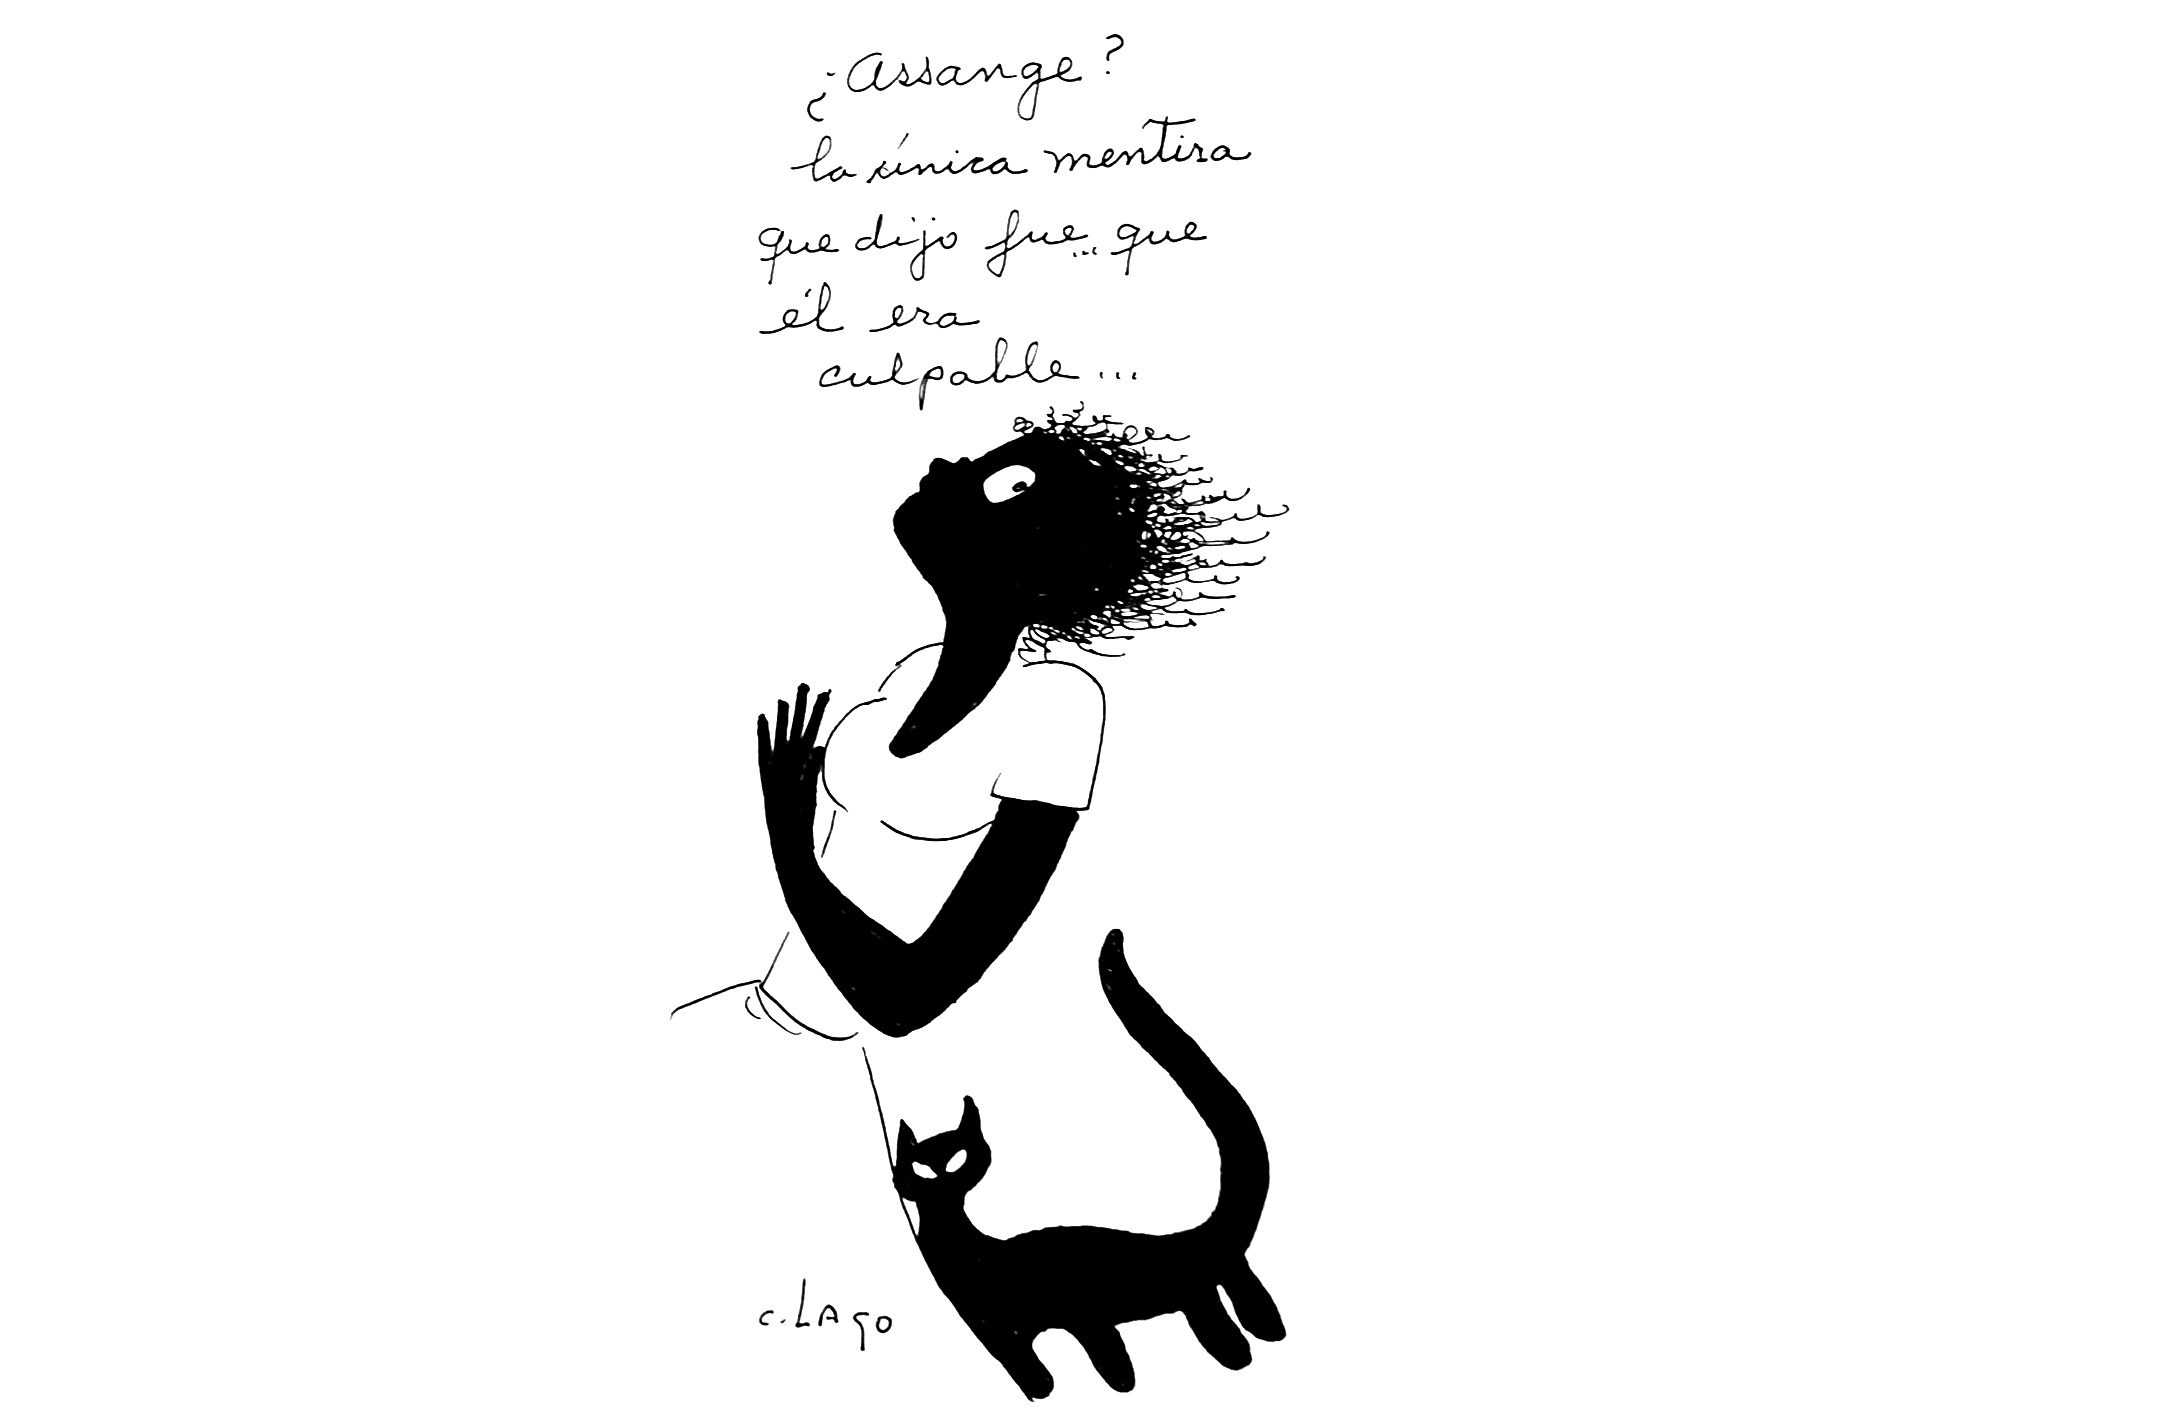 ¿Assange?
la única mentira
que dijo fue... que
él era
culpable...
C. LAGO